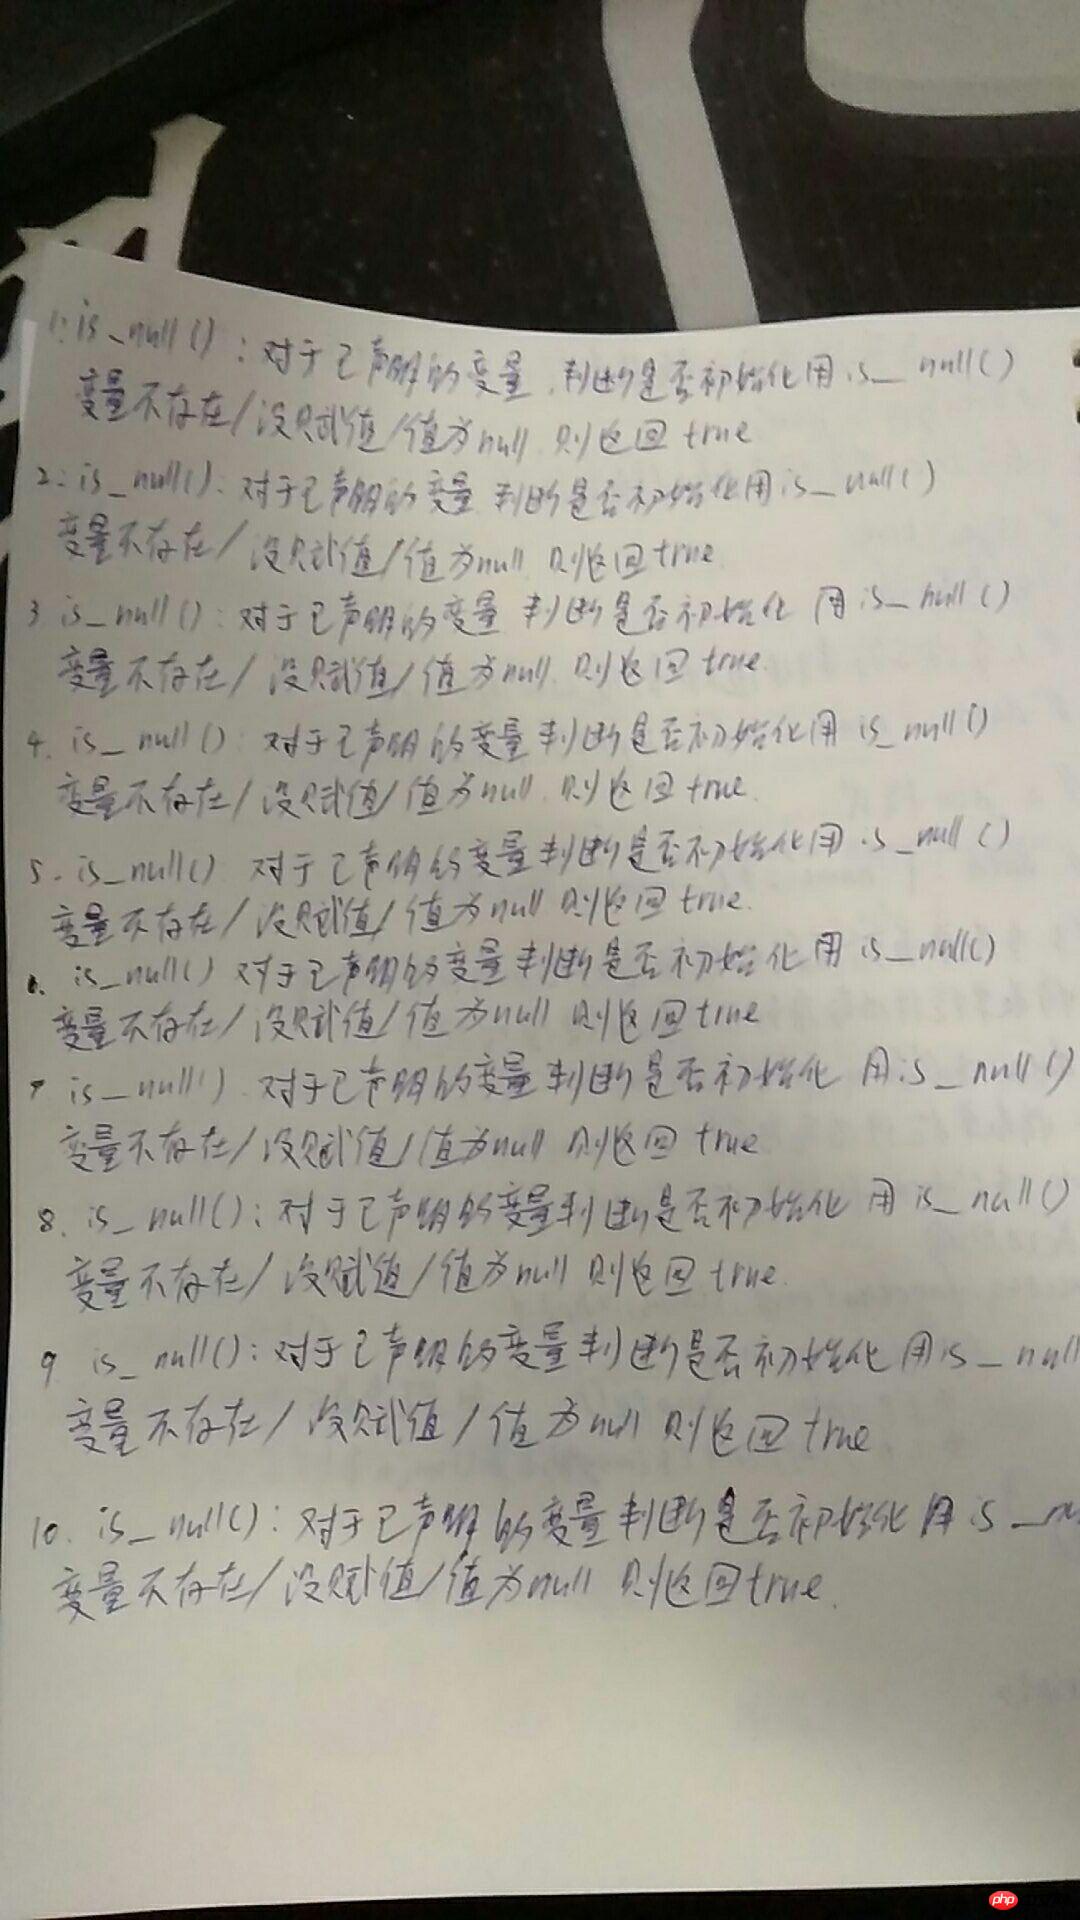 1: is_null() : 对于已声明的变量 判断是否初始化用is_null()
变量不存在/没赋值/值为null 则返回true
2: is_null(): 对于已声明的变量 判断是否初始化用is_null()
变量不存在/没赋值/值为null 则返回true
3 is_null(): 对于已声明的变量 判断是否初始化 用is_null()
变量不存在/没赋值/值为null 则返回true.
4. is_null() 对于已声明的变量判断是否初始化用is_null()
变量不存在/没赋值/值为null 则返回true.
5. is_null() 对于已声明的变量判断是否初始化用is_null()
变量不存在/没赋值/值为null 则返回true.
6. is_null() 对于已声明的变量判断是否初始化用is_null()
变量不存在/没赋值/值为null 则返回true
7 is_null() 对于已声明的变量判断是否初始化 用is_null()
变量不存在/没赋值/值为null 则返回true
8. is_null(): 对于已声明的变量判断是否初始化 用is_null()
变量不存在/没赋值/值为null 则返回true.
9 is_null(): 对于已声明的变量判断是否初始化用is_null
变量不存在/没赋值/值为null 则返回true
10. is_null(): 对于已声明的变量判断是否初始化用is_nu
变量不存在/没赋值/值为null 则返回true.
php